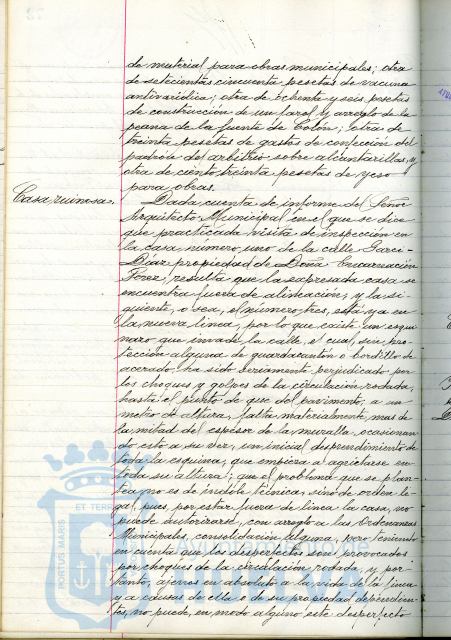 de material para obras municipales; otra
de setecientas cincuenta pesetas de vacuna
antivarídica; otra de ochenta y seis pesetas
de construcción de un farol y arreglo de la
peana de la fuente de Colón; otras de
treinta pesetas de gastos de confección del
padrón del arbitrio sobre alcantarillas, y
otra de ciento treinta pesetas de yeso
para obras.
Casa ruinosa.
Dada cuenta de informe del Señor
Arquitecto Municipal en el que se dice
que practicada visita de inspección en
la casa número uno de la calle Garci-
Díaz propiedad de Doña Encarnación
Pérez, resulta que la expresada casa se
encuentra fuera de alineación; y la si-
guiente, o sea, el número tres, está ya en
la nueva línea, por lo que existe un esqui-
nazo que invade la calle, el cual, sin pro-
tección alguna de guardacantón o bordillo de
acerado ha sido seriamente perjudicado por
los choques y golpes de la circulación rodada,
hasta el punto de que del pavimento, a un
metro de altura, falta materialmente mas de
la mitad del espesor de la muralla, ocasionan
do esto a su vez, un inicial desprendimiento de
toda la esquina, que empieza a agrietarse en
toda su altura; que el problema que se plan-
tea, no es de índole técnica, sino de orden le-
gal, pues, por estar fuera de línea la casa, no
puede autorizarse, con arreglo a las Ordenanzas
Municipales, consolidación alguna, pero teniendo
en cuenta que los desperfectos son provocados
por choques de la circulación rodada, y por
tanto, ajenos en absoluto a la vida de la finca
y a causas de ella o de su propiedad dependien-
tes, no puede, en modo alguno este desperfecto
PORTUS MARIS
ET TERR